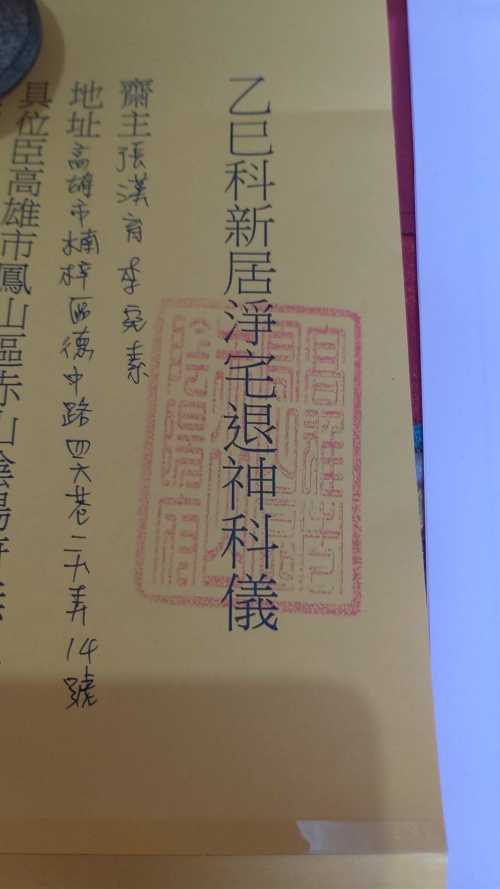 乙巳科新居淨宅退神科儀
齋主張漢育李宛素
地址高雄市楠梓區德中路四六巷二六弄14號
具位臣高雄市鳳山區赤山陰陽